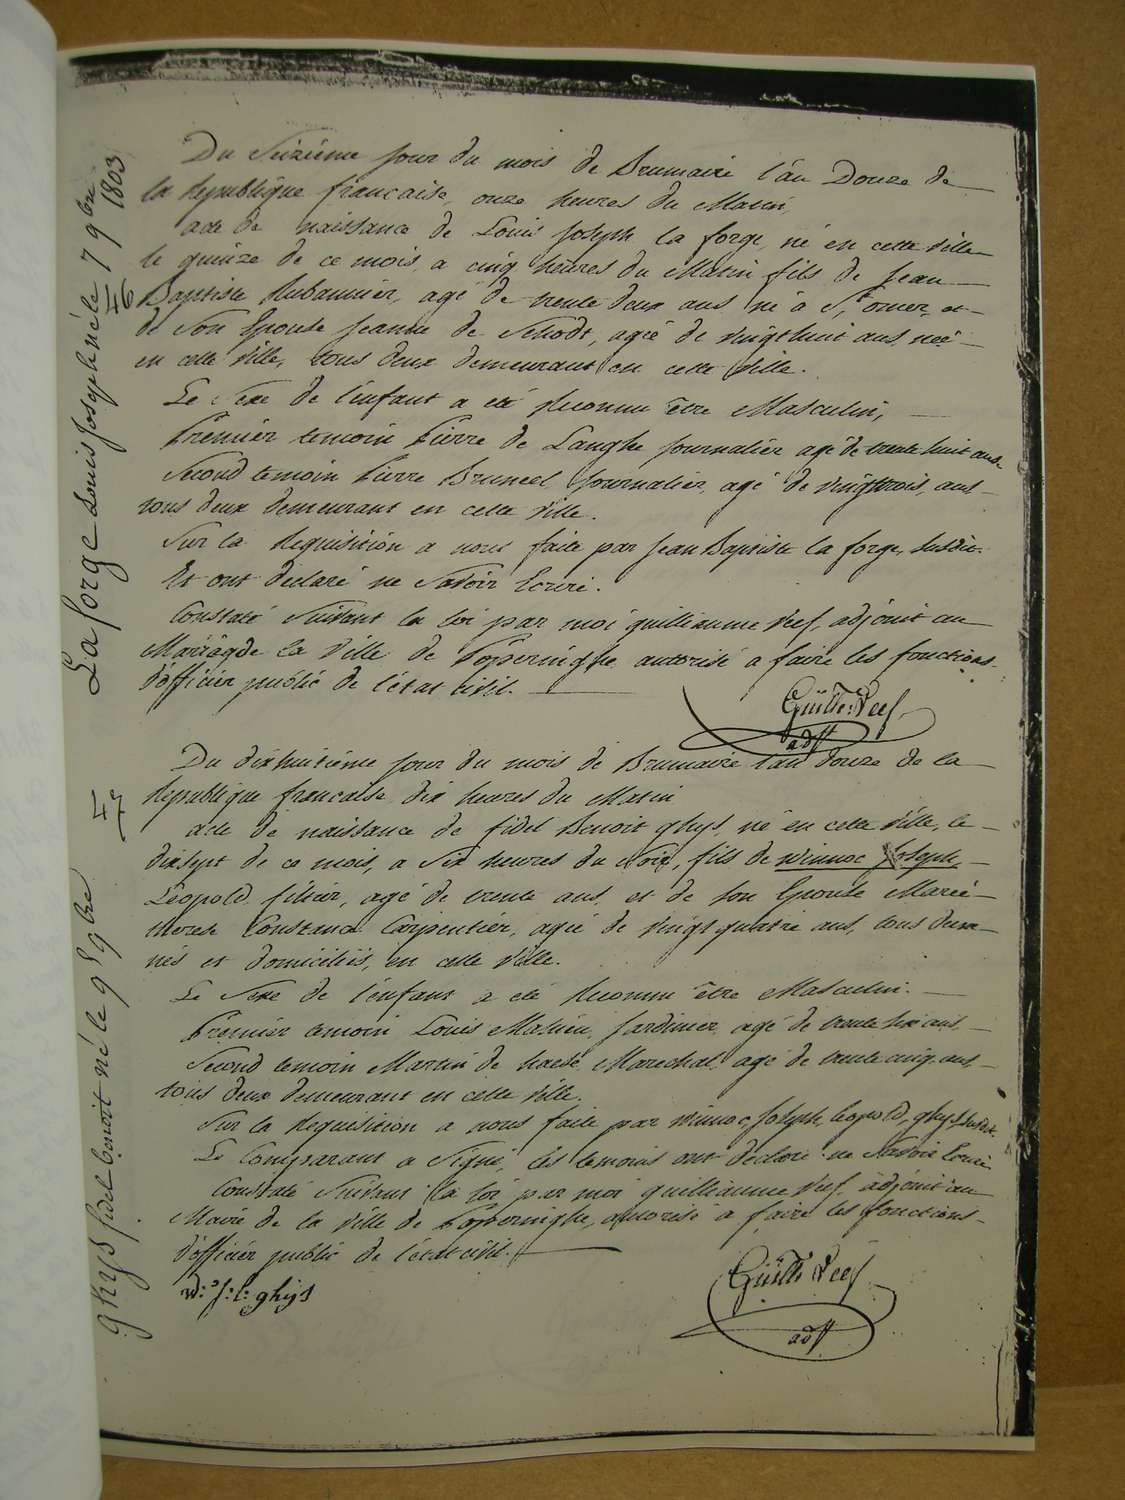 La forge Louis Joseph né le 7 9bre 1803
Du Seizième jour du mois de Brumaire l'an Douze de
la Republique francaise, onze heures du Matin,
acte de naissance de Louis Joseph la forge, né en cette ville
le quinze de ce mois, a cinq heures du Matin fils de Jean
Baptiste Rubannier, agé de trente deux ans né à St omer, et
de Son Epouse Jeanne de Schodt, agée de vingthuit ans, née
en cette ville, tous deux demeurant en cette ville.
Le Sexe de l'enfant a été Reconnu être Masculin,
Premier temoin Pierre de Langhe journalier agé de trente huit ans
Second temoin Pierre Bruneel journalier, agé de vingttrois, ans
tous deux demeurant en cette ville.
Sur la Requisition a nous faite par Jean Baptiste la forge, susdit.
Et ont déclaré ne Savoir Ecrire.
Constaté Suivant la loi par moi guilliaume Reef, adjoint au
Mairie de la Ville de Poperinghe autorisé a faire les fonctions
d'officier public de l'état civil.
adjt
ghys fidel benoit né le 9 9bre
Du dixhuitième jour du mois de Brumaire l'an douze de la
Republique francaise dix heures du Matin
acte de naissance de fidel Benoit ghys, né en cette ville, le
dixsept de ce mois, a Six heures du Soir, fils de winnoc Joseph
Léopold agé de trente ans, et de Son Epouse Marie
therese Constance Carpentier, agée de vingt quatre ans, tous deux
nés et domiciliés, en cette ville.
Le Sexe de l'enfant a été Reconnu être Masculin.
Premier temoin Louis Mahieu, Jardinier, agé de trente six ans,
Second temoin Martin de haese Marechal, agé de trente cinq ans,
tous deux demeurant en cette ville.
Sur la Requisition a nous faite par winnoc, Joseph, leopold, ghys susdit.
Le Comparant a Signé, les temoins ont declaré ne Savoir Ecrire
Constaté Suivant la loi, par moi guilliaume Reef, adjoint au
Maire de la Ville de Poperinghe, autorisé à faire les fonctions
d'officier public de l'état civil.
w: j: l: ghijs
adjt